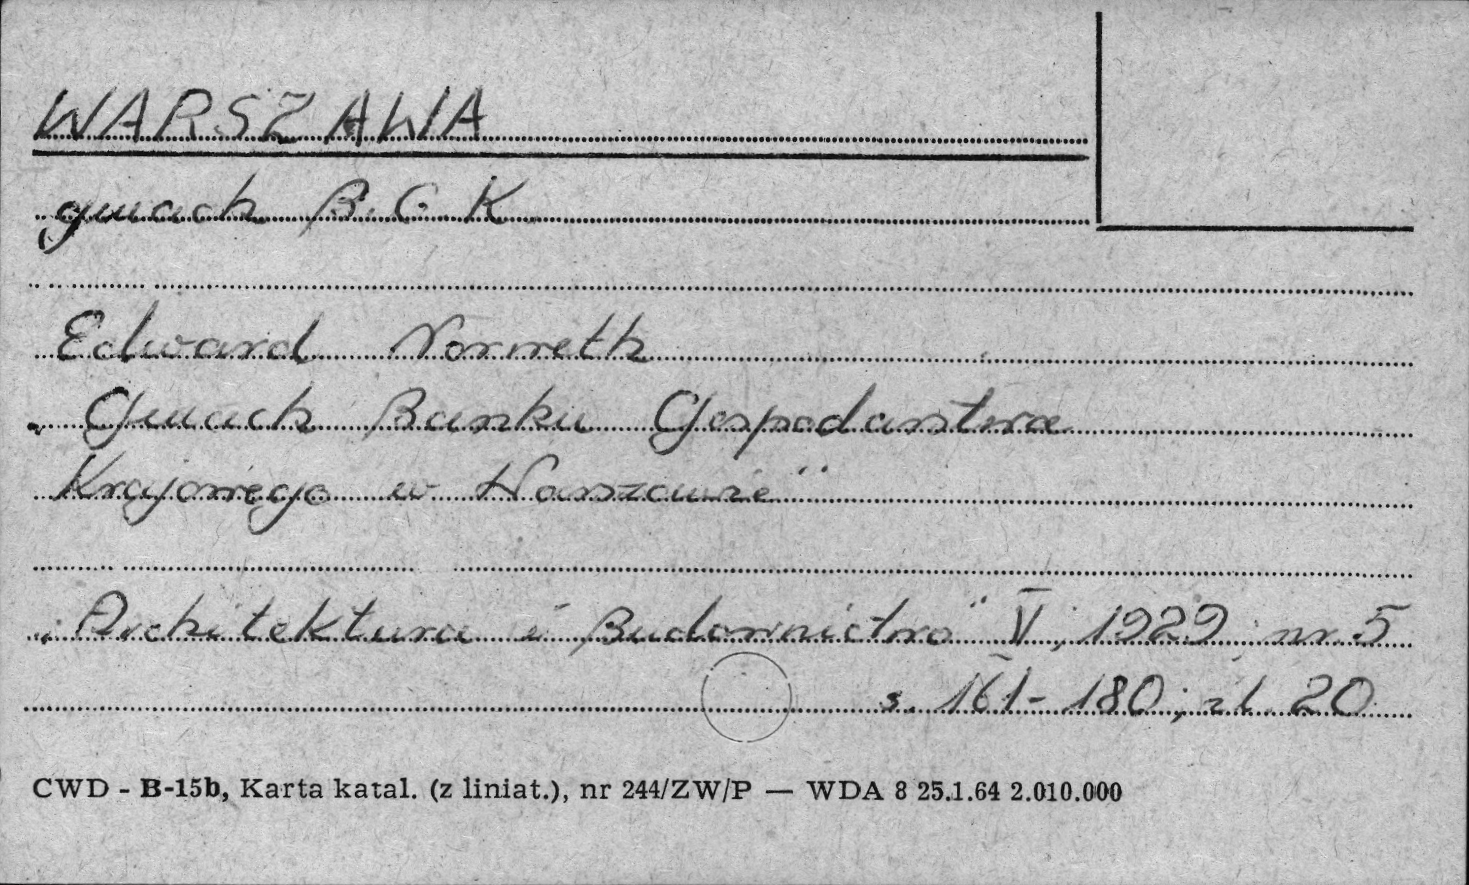 WARSZAWA
gmach B.G.K.
Edward Norwerth
„Gmach Banku Gospodarstwa
Krajowego w Warszawie"
„Architektura i Budownictwo" V, 1929 nr 5
s. 161-180; il. 20
CWD - B-15b, Karta katal. (z liniat.), nr 244/ZW/P — WDA 8 25.1.64 2.010.000